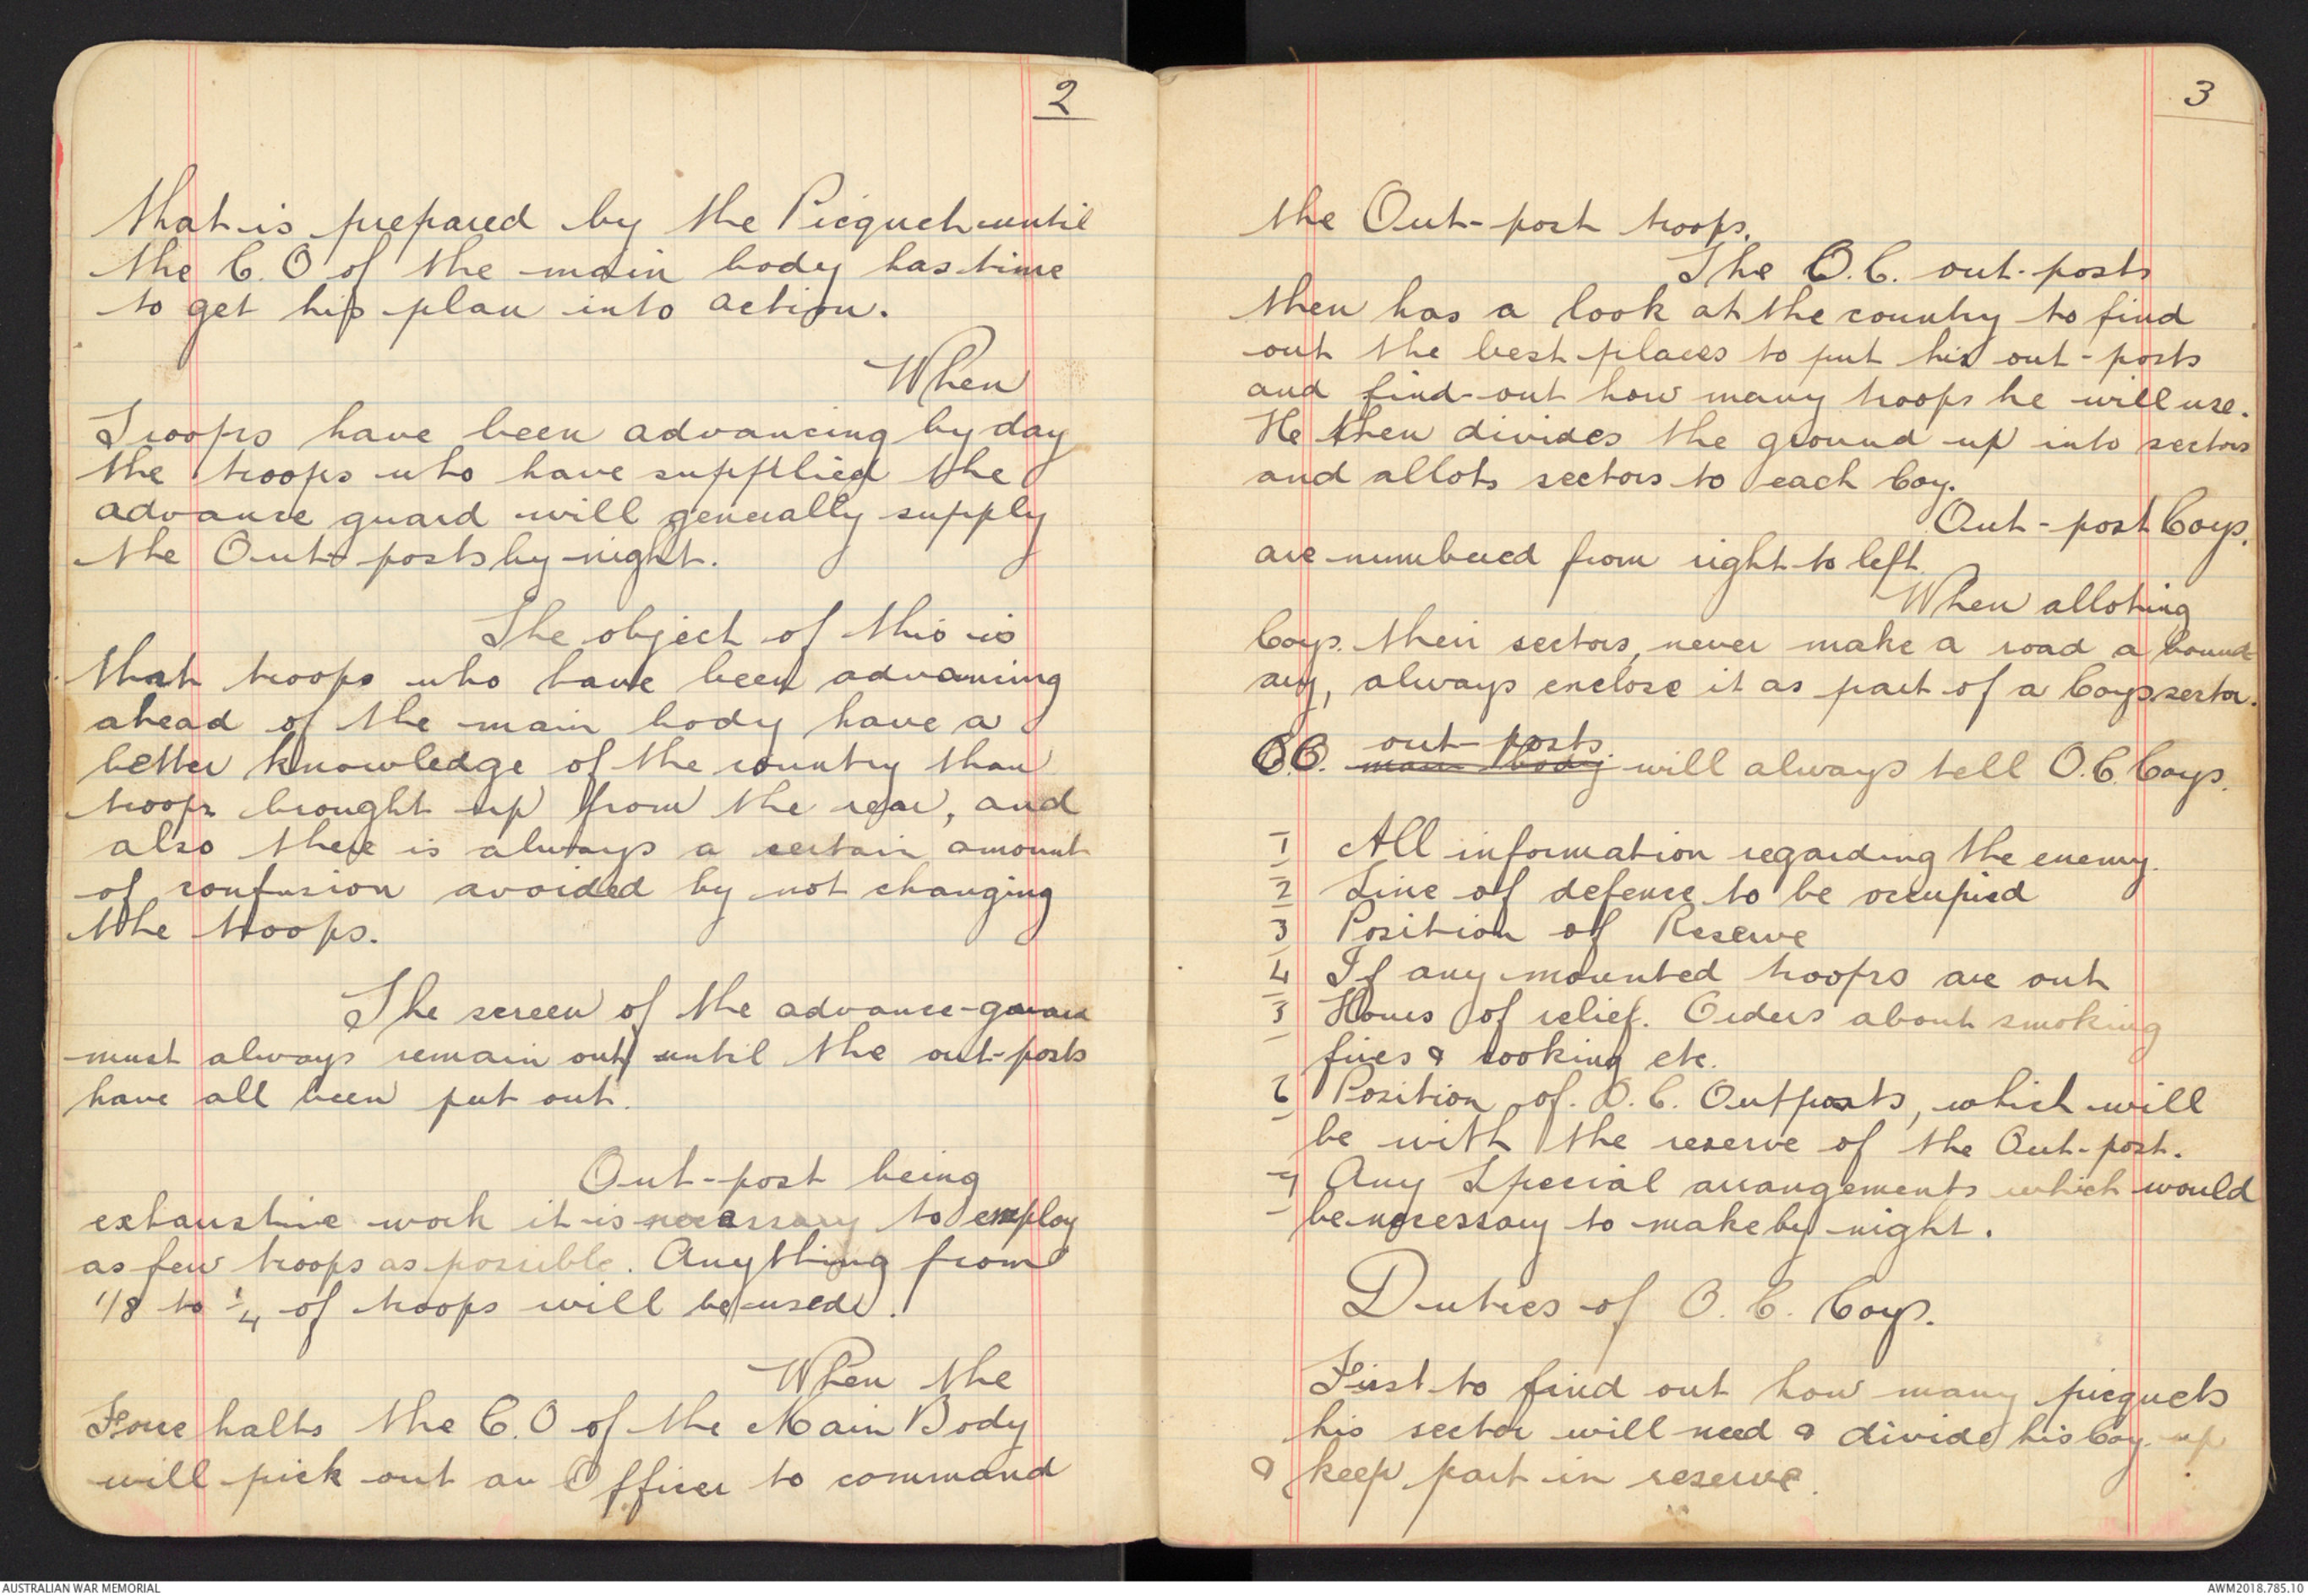 2
that is prepared by the Picquet until
the C.O of the main body has time
to get his plan into action.
When
Troops have been advancing by day
the troops who have supplied the
advance guard will generally supply
the Out-posts by night.
The object of this is
that troops who have been advancing
ahead of the main body have a
better knowledge of the country than
troops brought up from the rear, and
also there is always a certain amount
of confusion avoided by not changing
the troops.
The screen of the advance-guard
must always remain out until the out-posts
have all been put out.
Out-post being
exhaustive work it is necessary to employ
as few troops as possible. Anything from
1/8 to 1/4 of troops will be used.
When the
Force halts the C.O of the Main Body
will pick out an Officer to command
3
the Out-post troops.
The O.C. out-posts
then has a look at the country to find
out the best places to put his out-posts
and find-out how many troops he will use.
He then divides the ground up into sectors
and allots sectors to each Coy.
Out-post Coys.
are numbered from right to left
When alloting
Coys. their sectors, never make a road a bound
ary, always enclose it as part of a Coys sector.
out-posts.
O.C. main body will always tell O.C. Coys.
1 All information regarding the enemy.
2 Line of defence to be occupied
3 Position of Reserve
4 If any mounted troops are out
5 Hours of relief. Orders about smoking
fires & cooking etc.
6 Position of O.C. Outposts, which will
be with the reserve of the Out-post.
7 Any Special arrangements which would
be necessary to make by night.
Duties of O.C. Coys.
First to find out how many picquets
his sector will need & divide his Coy. up
& keep part in reserve.
AUSTRALIAN WAR MEMORIAL
AWM2018.785.10